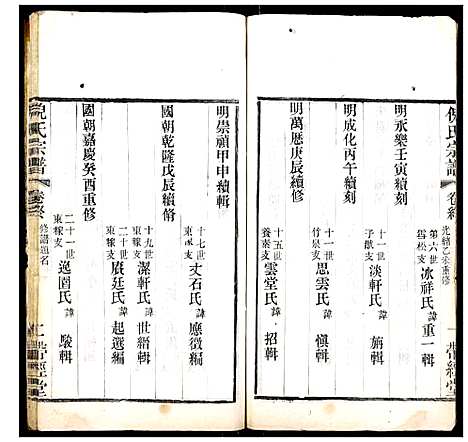 倪氏宗譜
卷終
光緒乙未重修
一
常經堂
明永樂壬寅續刻
第六世
雪松支
冰祥氏
諱重一輯
明成化丙午續刻
十一世
子猷支
淡軒氏
諱旃輯
明萬厯庚辰續修
十一世
竹泉支
思雲氏
諱慎輯
十五世
養素支
雲堂氏
諱招輯
明崇禎甲申續輯
十七世
東漈支
丈石氏
諱應徵編
國朝乾隆戊辰續脩
十九世
東稼支
潔軒氏
諱世縉輯
二十世
東稼支
賡廷氏
諱起選編
國朝嘉慶癸酉重修
二十一世
東稼支
逸園氏
諱駿輯
倪氏宗譜
卷終
修譜題名
二
常經堂